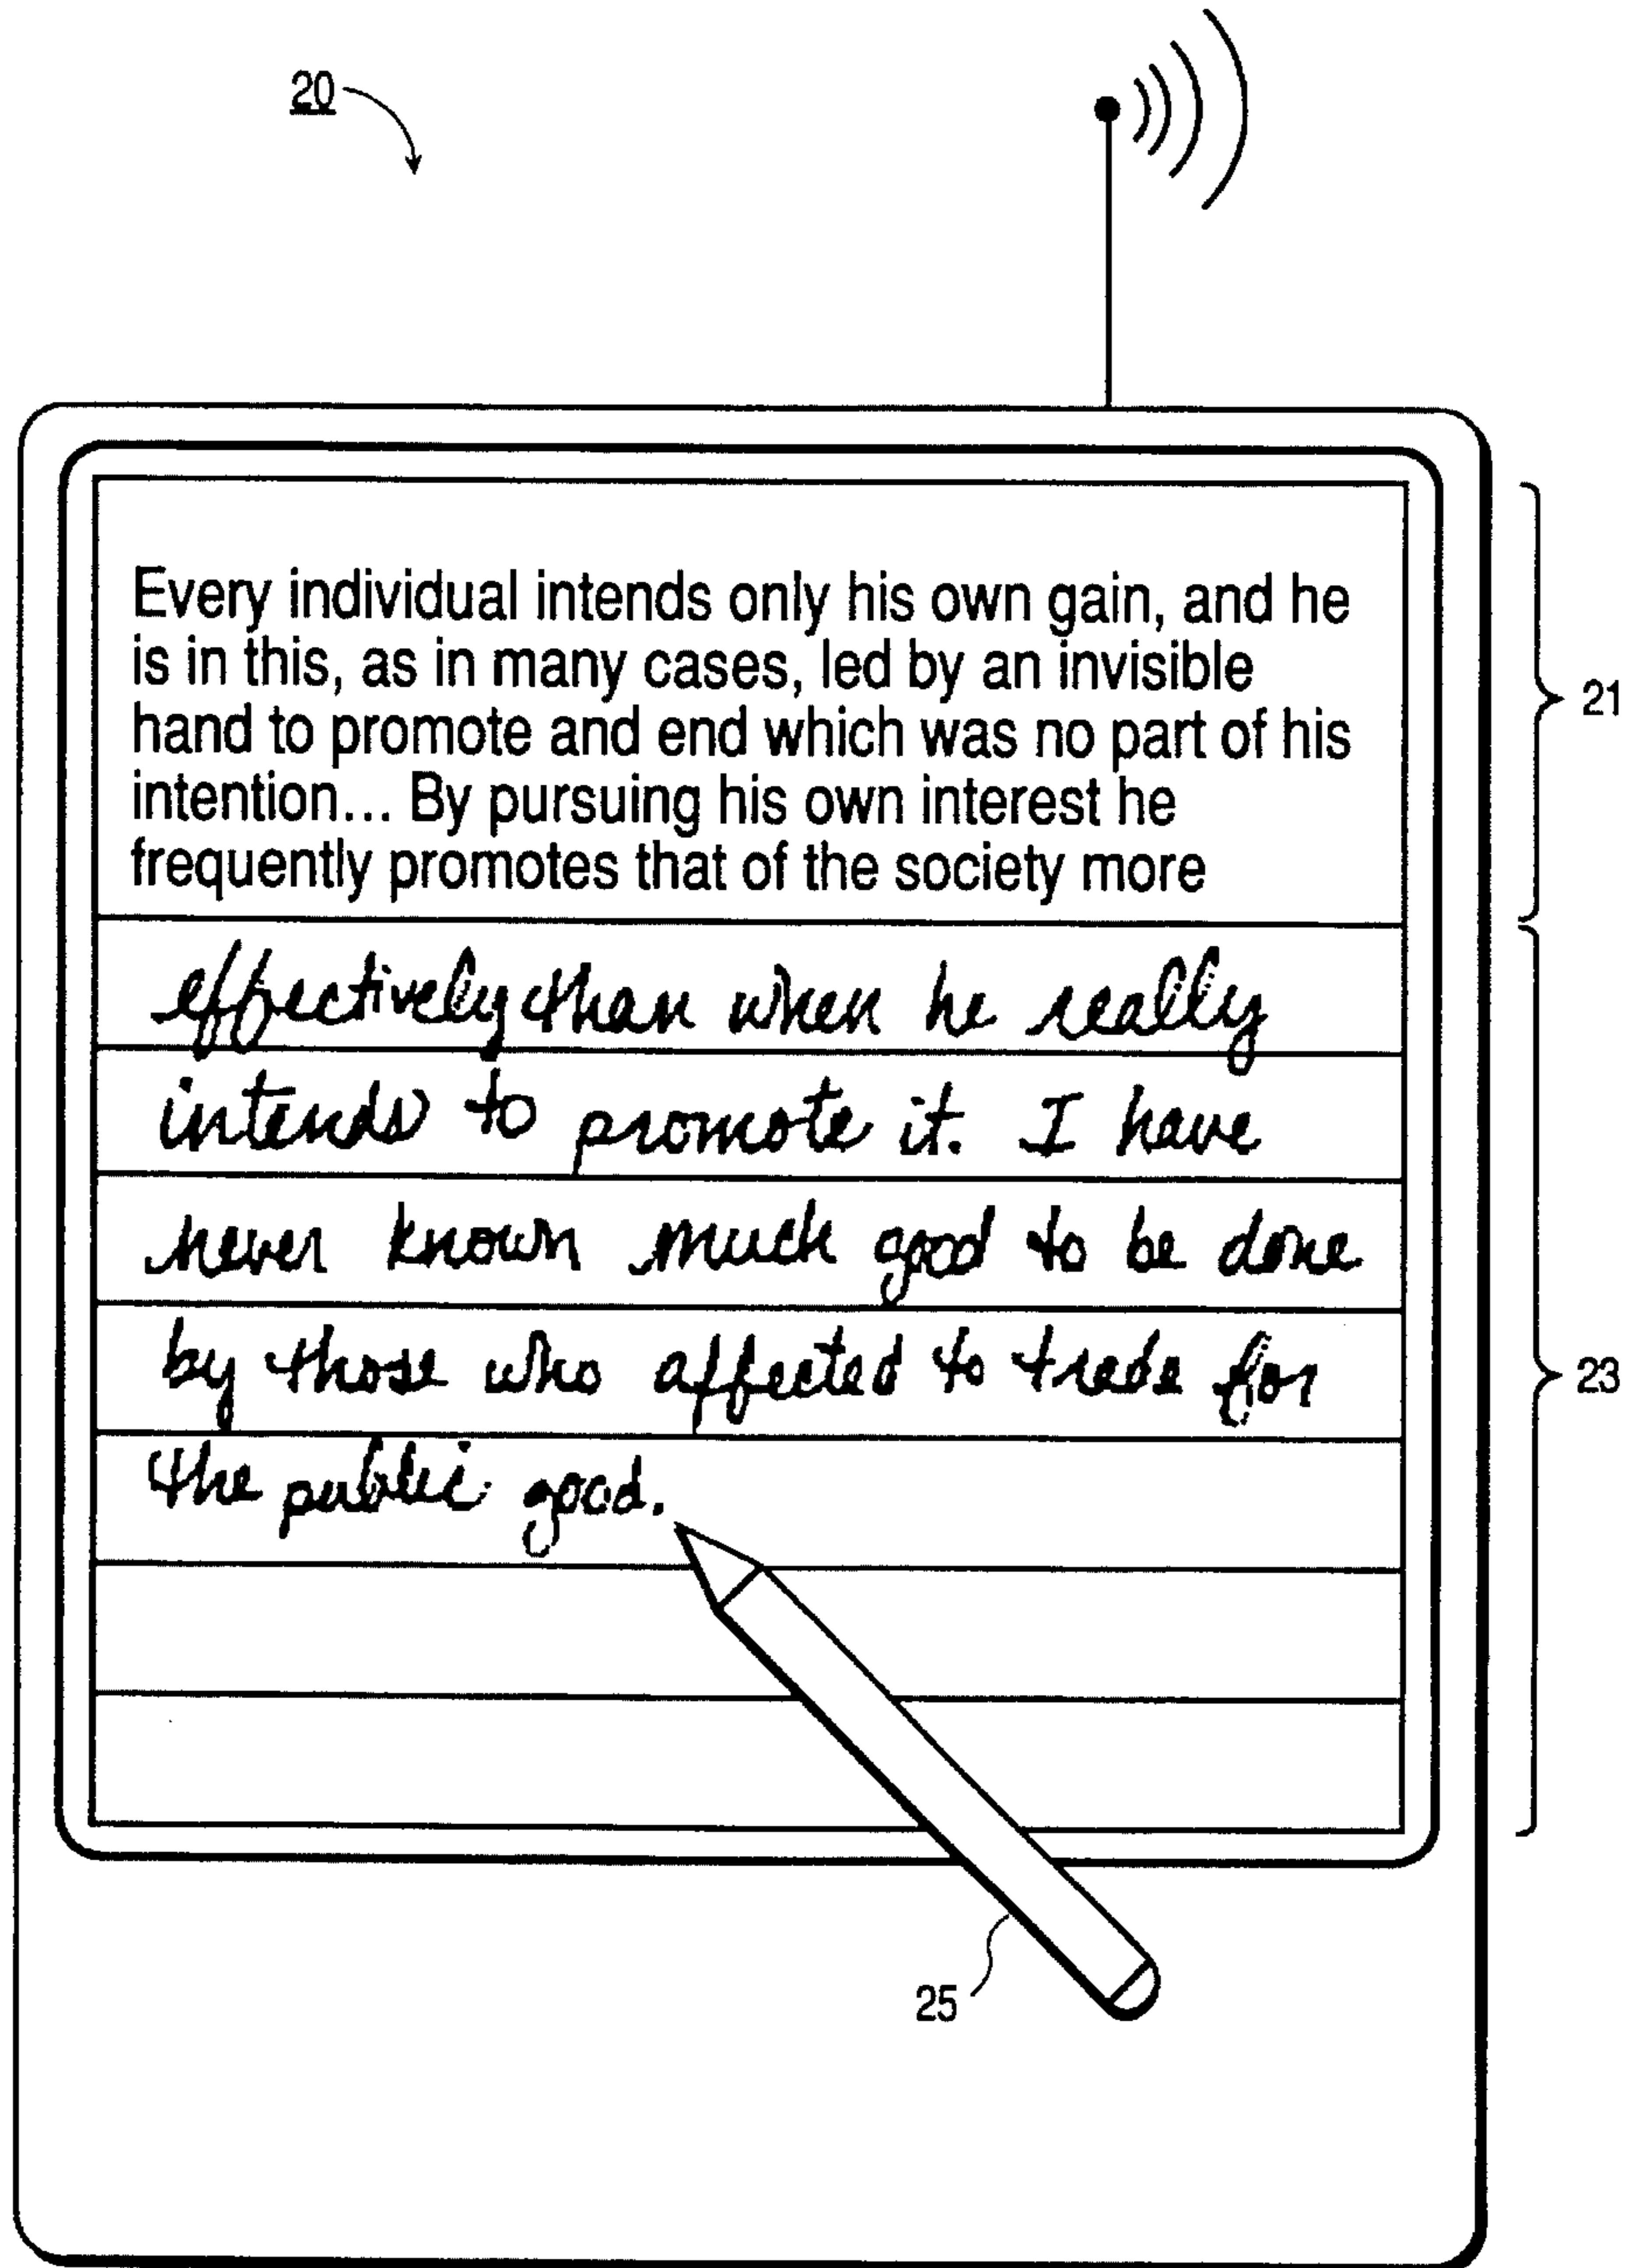 20
Every individual intends only his own gain, and he
is in this, as in many cases, led by an invisible
hand to promote and end which was no part of his
intention... By pursuing his own interest he
frequently promotes that of the society more
21
effectively than when he really
intends to promote it. I have
never known much good to be done
by those who affected to trade for
the public good.
23
25